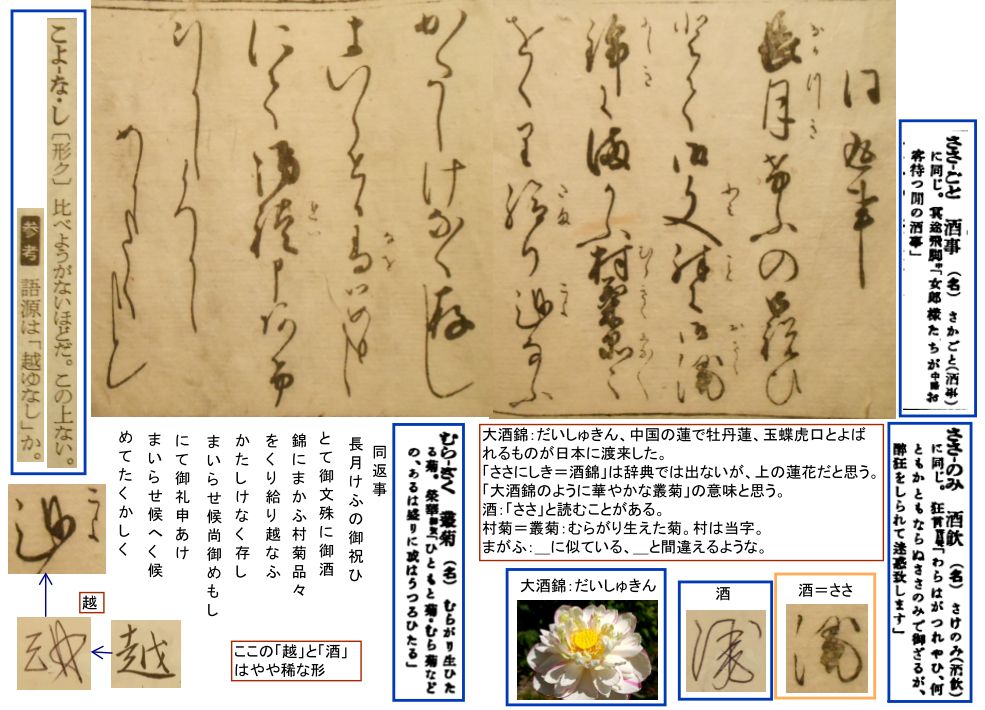 こよ-な・し〔形ク〕比べようがないほどだ。この上ない。
参考 語源は「越ゆなし」か。
同返事
長月けふの御祝ひ
とて御文殊に御酒
錦にまかふ村菊品々
をくり給り越なふ
かたしけなく存し
まいらせ候尚御めもし
にて御礼申あけ
まいらせ候へく候
めてたくかしく
ささ-ごと 酒事 （名） さかごと(酒事)
に同じ。冥途飛脚「女郎様たちが
客待つ間の酒事」
同返事
長月けふの御祝ひ
とて御文殊に御酒
錦にまかふ村菊品々
をくり給り越なふ
かたしけなく存し
まいらせ候尚御めもし
にて御礼申あけ
まいらせ候へく候
めてたくかしく
むら-ぎく 叢菊 （名） むらがり生ひた
る菊。榮華「ひともと菊・むら菊など
の、あるは盛りに或はうつろひたる」
大酒錦：だいしゅきん、中国の蓮で牡丹蓮、玉蝶虎口とよば
れるものが日本に渡来した。
「ささにしき＝酒錦」は辞典では出ないが、上の蓮花だと思う。
「大酒錦のように華やかな叢菊」の意味と思う。
酒：「ささ」と読むことがある。
村菊＝叢菊：むらがり生えた菊。村は当字。
まがふ：＿に似ている、＿と間違えるような。
ささ-のみ 酒飲 （名） さけのみ(酒飲)
に同じ。狂言「わらはがつれやひ、何
ともかともならぬささのみで御ざるが、
酔狂をしられて迷惑致します」
大酒錦：だいしゅきん
酒
酒＝ささ
越
ここの「越」と「酒」
はやや稀な形